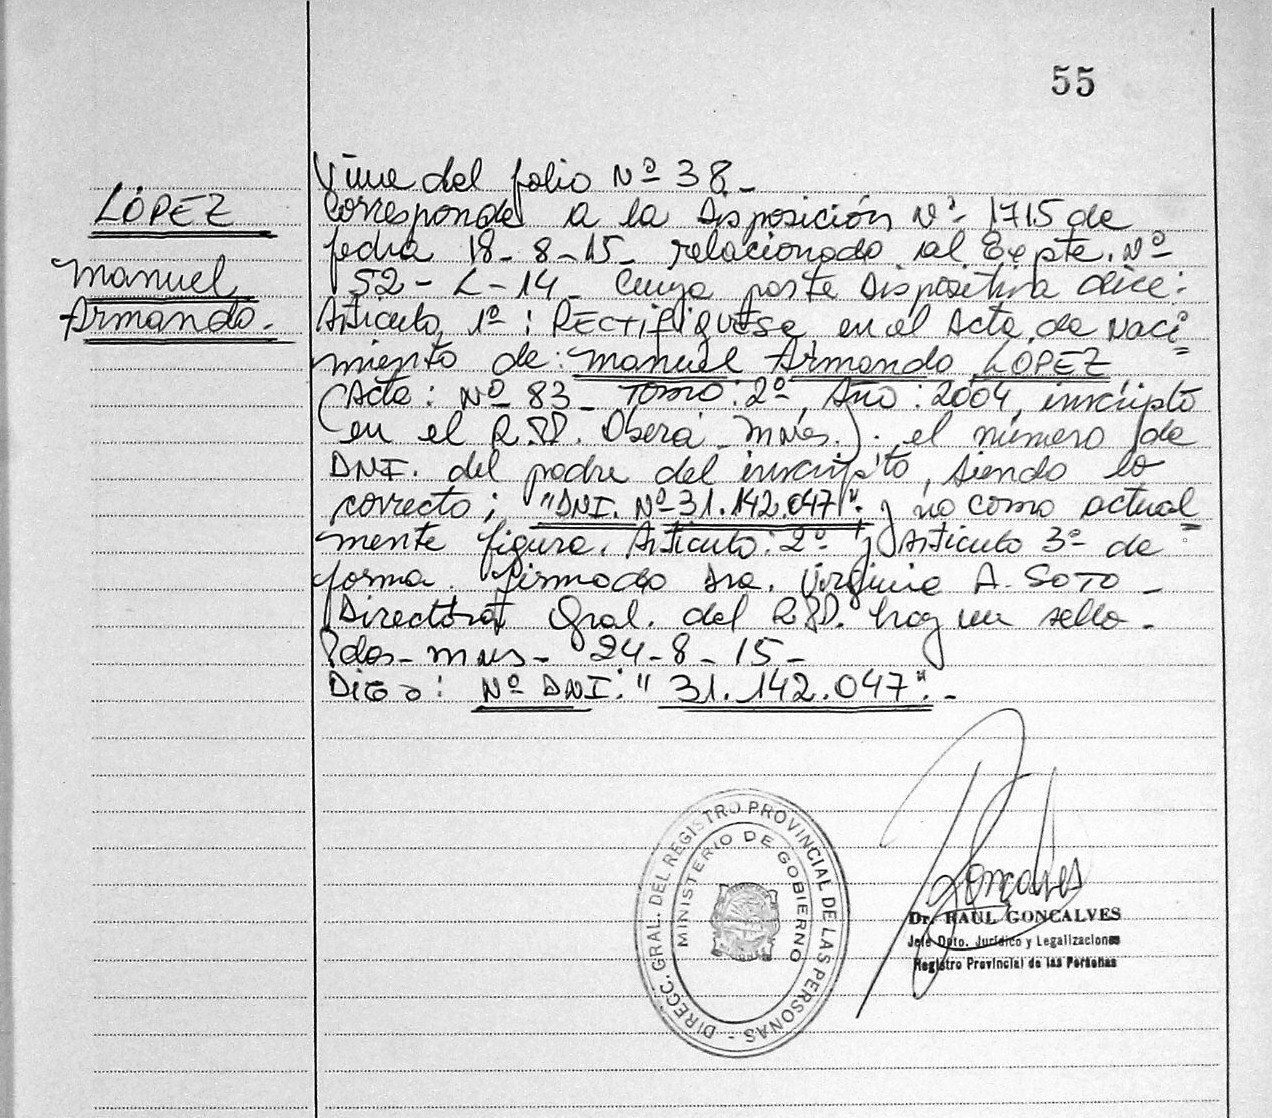 55
LÓPEZ
Manuel
Armando.
Viene del folio Nº 38.-
Corresponde a la Disposición Nº 1715 de
fecha 18-8-15- relacionado al Expte. Nº
52-L-14- Cuya parte Dispositiva dice:
Articulo 1º: RECTIFIQUESE en el Acta de Naci=
miento de: Manuel Armando LOPEZ
(Acta: Nº 83- Tomo: 2º, Año: 2004, inscripto
en el R.P.P. Oberá Mnes.). el número de
DNI. del padre del inscripto, siendo lo
correcto; "DNI. Nº 31.142.047". y no como actual=
mente figura. Articulo: 2º y Articulo 3º de
forma. firmado Dra. Virginia A. SOTO-
Directora Gral. del R.P.P. hay un sello-
Pdas- Mnes- 24-8-15-
Digo: Nº DNI: "31.142.047".-
DIRECC. GRAL. DEL REGISTRO PROVINCIAL DE LAS PERSONAS -
MINISTERIO DE GOBIERNO
Goncalves
Dr. RAUL GONCALVES
Jefe Dpto. Jurídico y Legalizaciones
Registro Provincial de las Personas